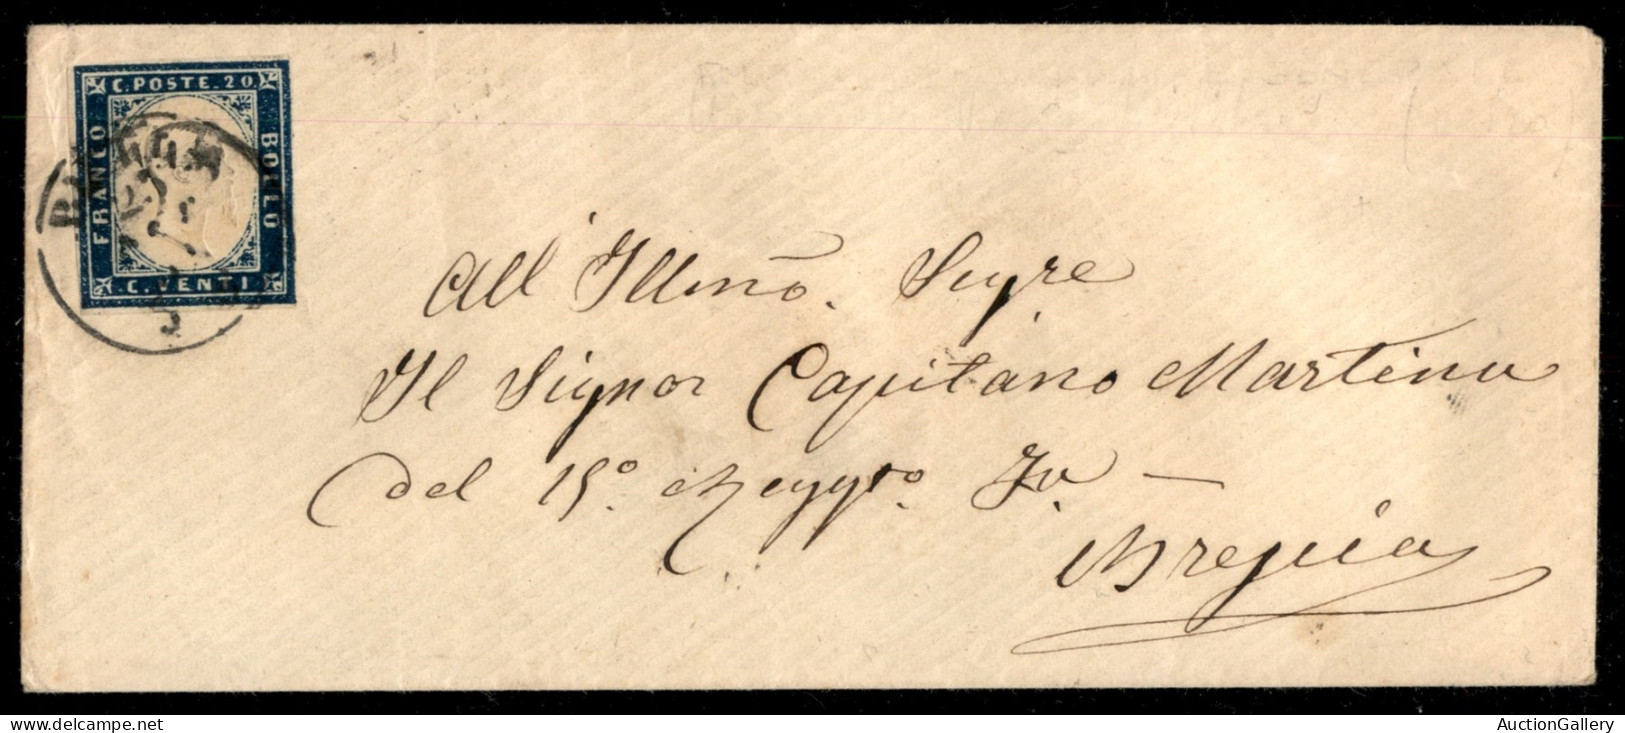 C. POSTE. 20
FRANCO
BOLLO
C. VENTI
All Illmo. Sigre
Il Signor Capitano Martini
del 15º. Reggto. Fa. —
Brescia
AuctionGallery